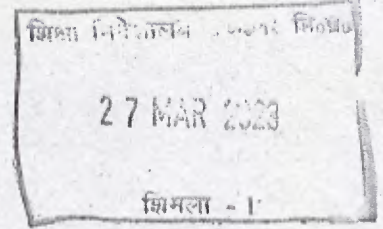 शिक्षा निदेशालय
27 MAR 2023
शिमला - 1